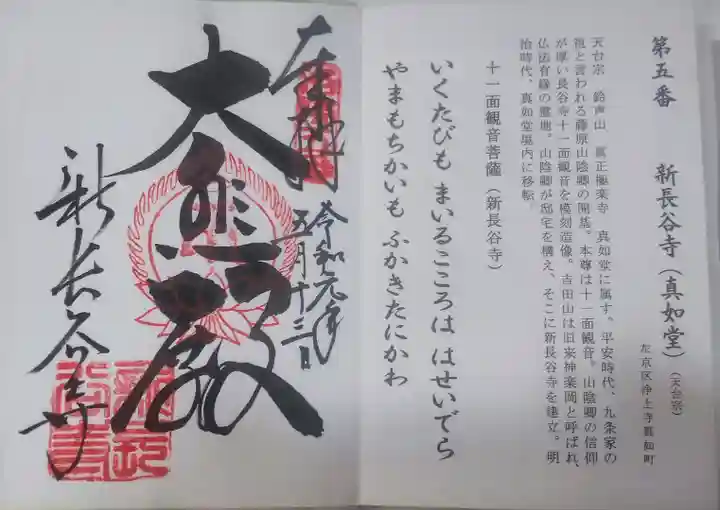 第五番 新長谷寺(真如堂)(天台宗)
左京区浄土寺真如町
天台宗 鈴声山 真正極楽寺 真如堂に属す。平安時代、九条家の
祖と言われる藤原山陰卿の開基。本尊は十一面観音。山陰卿の信仰
が厚い長谷寺十一面観音を模刻造像。吉田山は旧来神楽岡と呼ばれ、
仏法有縁の霊地。山陰卿が邸宅を構え、そこに新長谷寺を建立。明
治時代、真如堂境内に移転。
十一面観音菩薩(新長谷寺)
いくたびも まいるこころは はせいでら
やまもちかいも ふかきたにかわ
奉拝
令和元年
五月十三日
大悲殿
新長谷寺